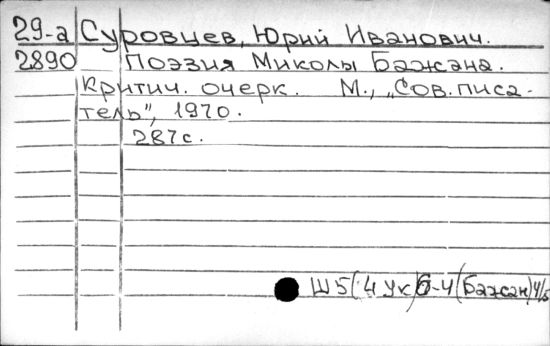 29-а Суровцев, Юрий Иванович.
2890 Поэзия Миколы Бажана.
Критич. очерк. М., „Сов. писа-
тель", 1970.
287 с.
Ш5(4Ук)6-4(Бажан)4/5